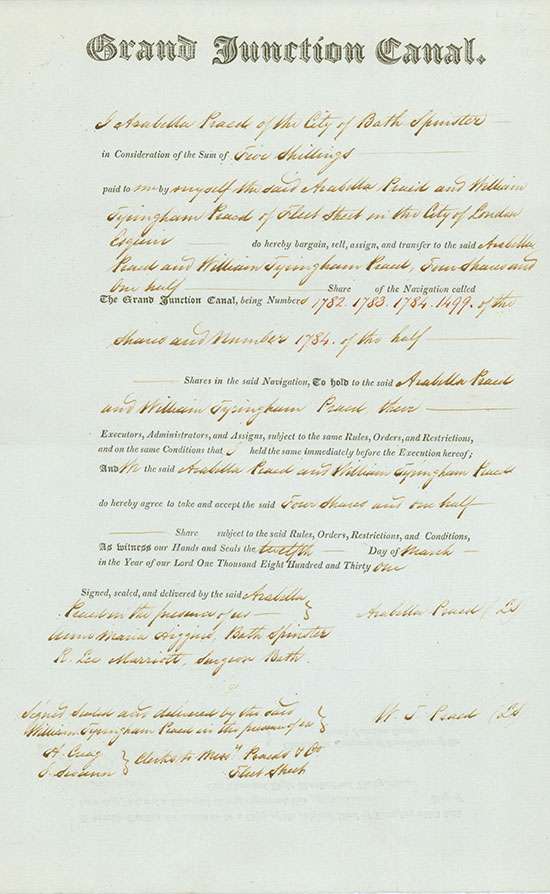 Grand Junction Canal.
I Arabella Praed of the City of Bath Spinster
in Consideration of the Sum of Five Shillings
paid to me by myself the said Arabella Praed and William
Tyringham Praed of Fleet Street in the City of London
Esquire do hereby bargain, sell, assign, and transfer to the said Arabella
Praed and William Tyringham Praed, Four Shares and
one half Share of the Navigation called
The Grand Junction Canal, being Numbers 1782. 1783. 1784. 1499. of the
Shares and Number 1784. of the half
Shares in the said Navigation, To hold to the said Arabella Praed
and William Tyringham Praed their
Executors, Administrators, and Assigns, subject to the same Rules, Orders, and Restrictions,
and on the same Conditions that I held the same immediately before the Execution hereof;
And We the said Arabella Praed and William Tyringham Praed
do hereby agree to take and accept the said Four Shares and one half
Share subject to the said Rules, Orders, Restrictions, and Conditions,
As witness our Hands and Seals the twelfth Day of March
in the Year of our Lord One Thousand Eight Hundred and Thirty one
Signed, sealed, and delivered by the said Arabella
Praed in the presence of us Arabella Praed (LS
Anna Maria Higgins, Bath Spinster
R. Lee Marriott, Surgeon Bath.
Signed Sealed and delivered by the said
William Tyringham Praed in the presence of us W. T. Praed (LS
H. Crag
Clerks to Messrs Praeds & Co
Fleet Street